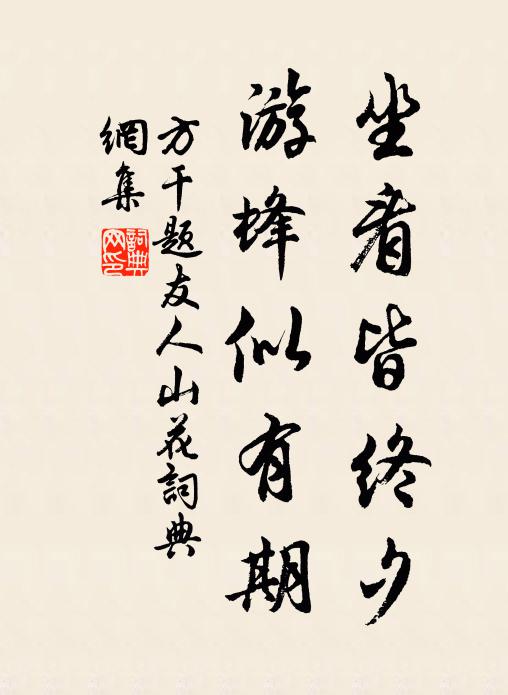 坐看皆终夕
游蜂似有期
方干题友人山花詞典
網集
詞典網印